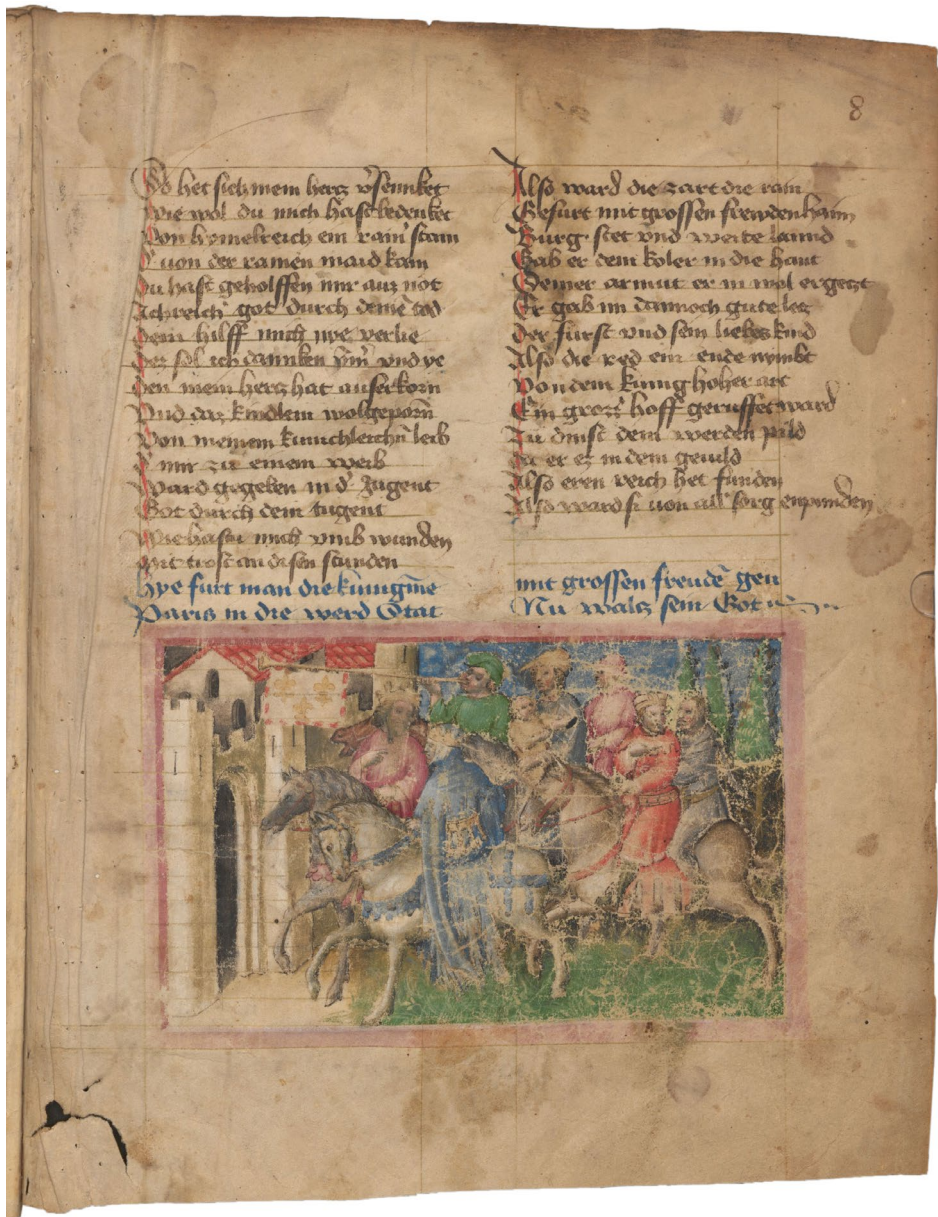 8
So het sich mein hercz v̓senncket
Wie wol du mich hast bedencket
Von hymelreich ein rain stam
D von der rainen maid kam
Du hast geholffen mir auz not
Ich reich got durch deinē tod
Dein hilff mich nye verlie
Der sol ich dannken ym̄ vnd ye
Den mein hercz hat auserkorn
Vnd daz kindlein wolgeporn̄
Von meinem kunichleichn̄ leib
D mir zu einem weib
Ward gegeben in d̓ Jugent
Got durch dein tugent
Wie hastu mich vmb wunden
Mit trost an disen stunden
Also ward die zart die rain
Gefurt mit grossen frewden haim
Burg stet vnd weite lannd
Gab er dem koler in die hant
Seiner armut er in wol ergetzt
Er gab im dannoch gute letz
Der furst vnd sein liebes kind
Also die red ein ende nymbt
Von dem kunig hoher art
Ein grozz hoff geruffet ward
Zu dinst dem werden pild
Da er ez in dem gewild
Also eren reich het funden
Also ward si uon all̓ sorg enpunden
hye furt man die kunigīne
Paris in die werd Stat
mit grossen freudē gen
Nu walcz sein Got